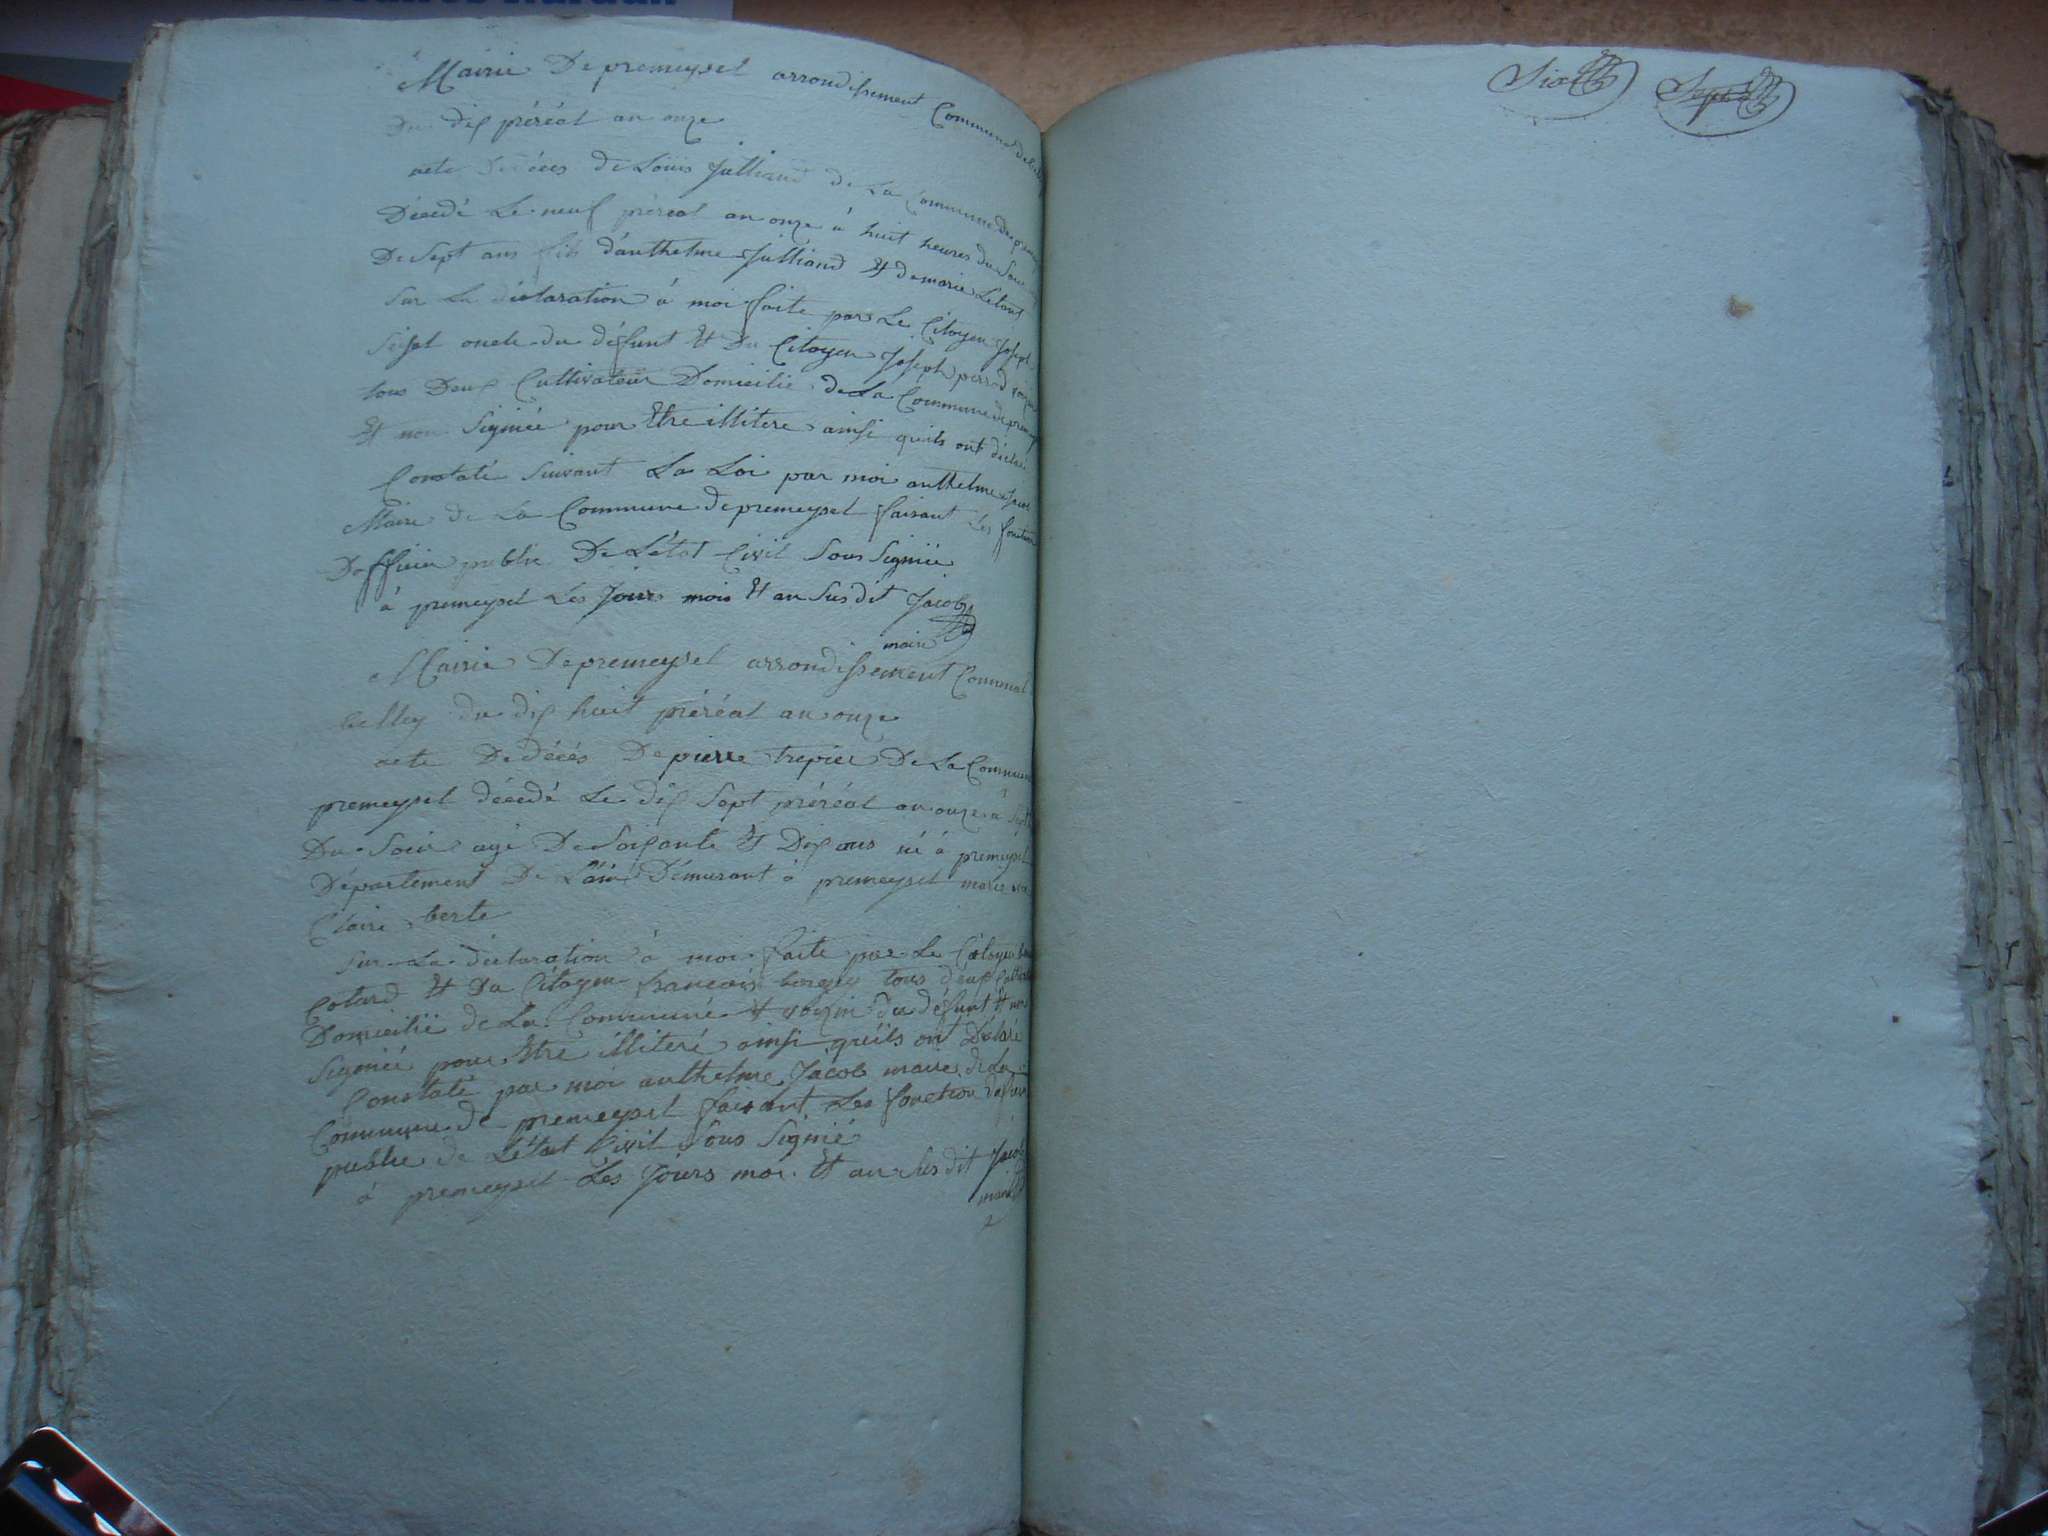 Mairie De premeysel arrondissement Communal de
Du dix préréal an onze
acte Décès de Loüis Julliand de La Commune De
Décedé Le neuf préreal an onze à huit heures du Soir
De Sept ans fils d'anthelme Julliand & demarie
Sur La déclaration à moi faite par Le Citoyen Joseph
oncle du défunt & Du Citoyen Joseph perrod
tous Deux Cultivateur Domicilié de La Commune de premeysel
& non Signiée pour Etre illitere ainsi quils ont déclaré
Constaté Suivant La Loi par moi anthelme Jacob
Maire de La Commune de premeysel faisant Les fonction
Dofficier public De Létat Civil Sous Signié
à premeysel Les Jours mois & an Susdit Jacob
maire
Mairie De premeysel arrondissement Communal
belley du dix huit préréal an onze
acte De décés De pierre trepier De La Commune
premeysel décedé Le dix Sept préréal an onze à Sept
Du Soir agé De Soixante & Dix ans né à premeysel
Département De Lain Démurant à premeysel
Claire berte
Sur La déclaration à moi faite par Le Citoyen
Cotard & Du Citoyen francois tous deux
Domicilié de La Commune & voizin du défunt & non
Signiée pour Etre illiteré ainsi quils ont Déclaré
Constaté par moi anthelme Jacob maire de La
Commune de premeysel faisant Les fonction
public de Létat Civil Sous Signié
à premeysel Les Jours moi & an Susdit Jacob
maire
Six